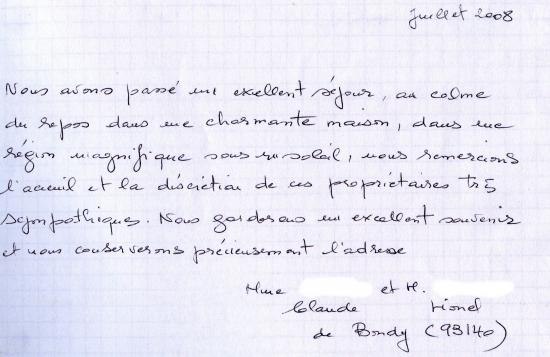 Juillet 2008
Nous avons passé un excellent séjour, au calme
du repos dans une charmante maison, dans une
région magnifique sous un soleil, nous remercions
l'accueil et la discrétion de ces propriétaires très
sympathiques. Nous garderons un excellent souvenir
et nous conserverons précieusement l'adresse
Mme et M.
Claude Lionel
de Bondy (93140)